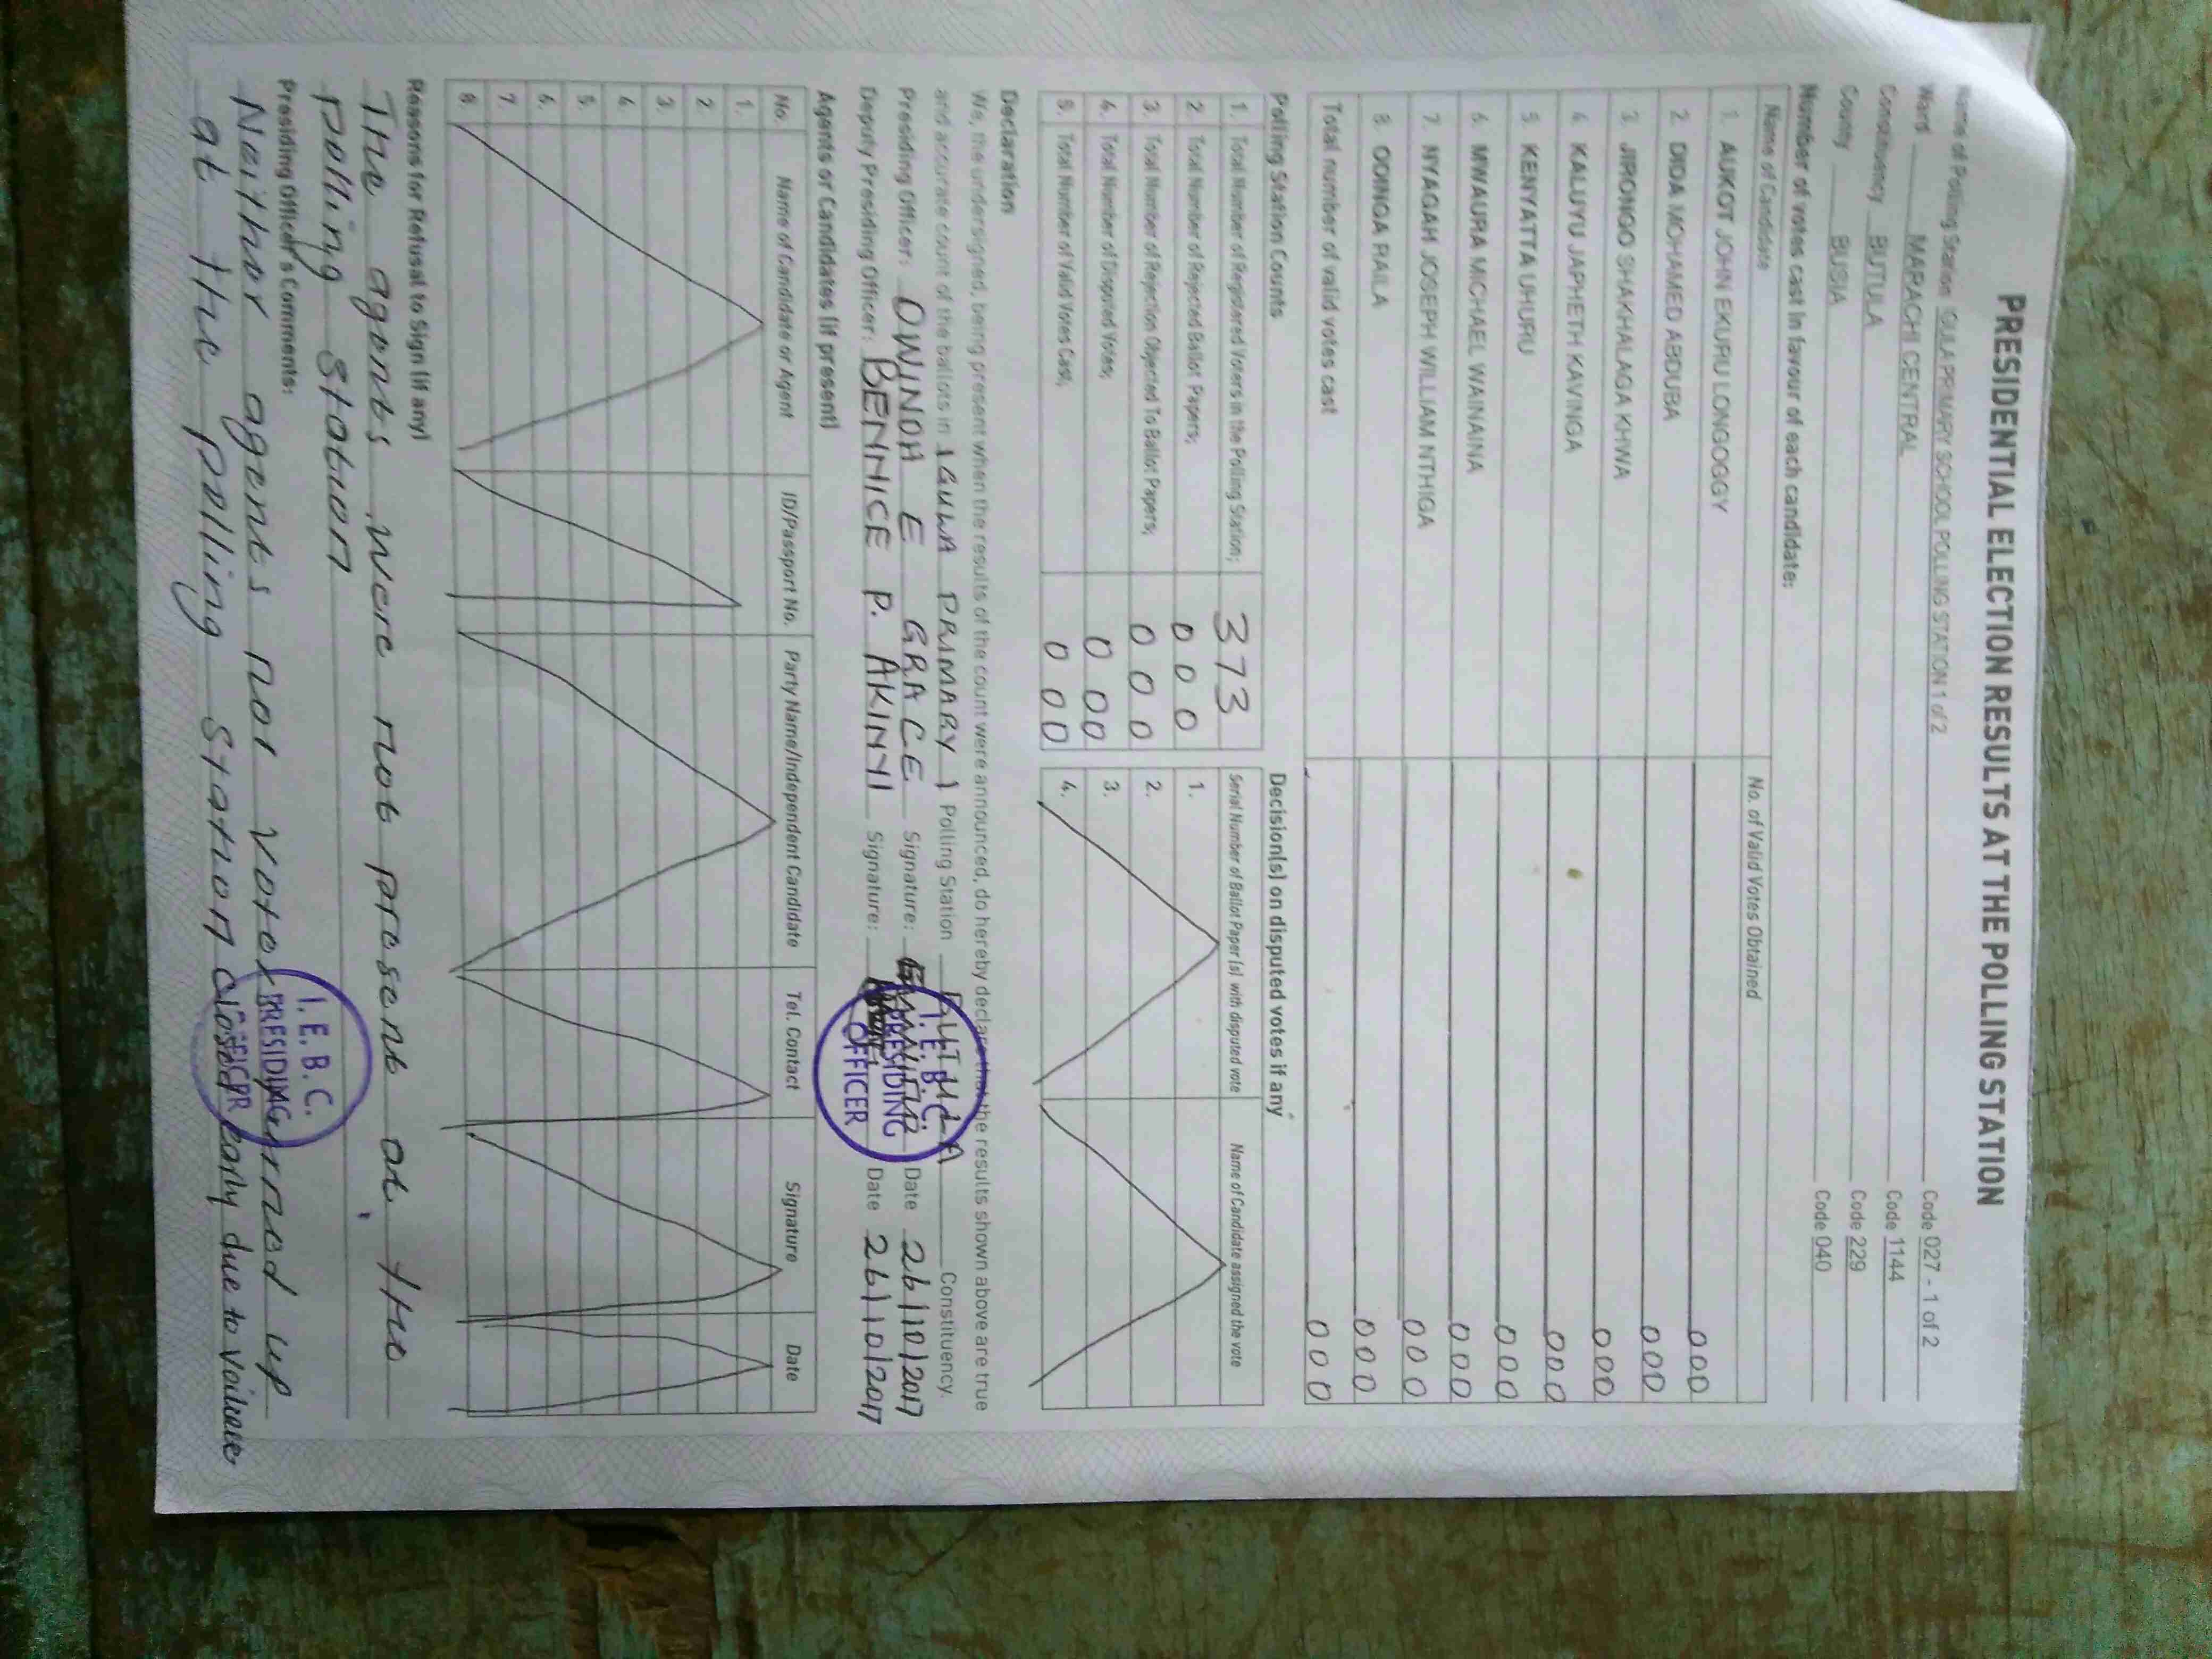 PRESIDENTIAL ELECTION RESULTS AT THE POLLING STATION
Name of Polling Station IGULA PRIMARY SCHOOL POLLING STATION 1 of 2 Code 027 - 1 of 2
Ward MARACHI CENTRAL Code 1144
Constituency BUTULA Code 229
County BUSIA Code 040
Number of votes cast in favour of each candidate:
Name of Candidate No. of Valid Votes Obtained
1. AUKOT JOHN EKURU LONGOGGY 000
2. DIDA MOHAMED ABDUBA 000
3. JIRONGO SHAKHALAGA KHWA 000
4. KALUYU JAPHETH KAVINGA 000
5. KENYATTA UHURU 000
6. MWAURA MICHAEL WAINAINA 000
7. NYAGAH JOSEPH WILLIAM NTHIGA 000
8. ODINGA RAILA 000
Total number of valid votes cast 000
Polling Station Counts
1. Total Number of Registered Voters in the Polling Station; 373
2. Total Number of Rejected Ballot Papers; 000
3. Total Number of Rejection Objected To Ballot Papers; 000
4. Total Number of Disputed Votes; 000
5. Total Number of Valid Votes Cast; 000
Decision(s) on disputed votes if any
Serial Number of Ballot Paper (s) with disputed vote Name of Candidate assigned the vote
1.
2.
3.
4.
Declaration
We, the undersigned, being present when the results of the count were announced, do hereby declare that the results shown above are true
and accurate count of the ballots in IGULA PRIMARY 1 Polling Station BUTULA Constituency.
Presiding Officer: OWINDA E GRACE Signature: Date 26/10/2017
Deputy Presiding Officer: BENNICE P. AKINYI Signature: Date 26/10/2017
I. E. B. C.
PRESIDING
OFFICER
Agents or Candidates (if present)
No. Name of Candidate or Agent ID/Passport No. Party Name/Independent Candidate Tel. Contact Signature Date
1.
2.
3.
4.
5.
6.
7.
8.
Reasons for Refusal to Sign (if any)
The agents were not present at the
polling station
Presiding Officer's Comments:
Neither agents nor voter turned up
at the polling station closed early due to
I. E. B. C.
PRESIDING
OFFICER